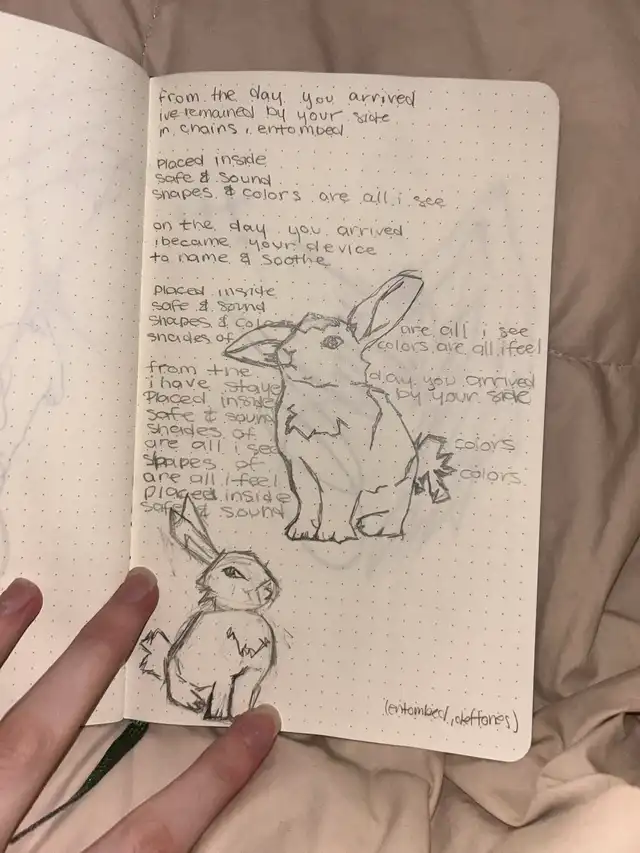 from the day you arrived
ive remained by your side
in chains, entombed
placed inside
safe & sound
shapes & colors are all i see
on the day you arrived
i became your device
to name & soothe
placed inside
safe & sound
shapes & colo
shades of
are all i see
colors are all i feel
from the day you arrived
i have staye by your side
placed inside
safe & sound
shades of colors
are all i see
shapes of colors
are all i feel
placed inside
safe & sound
(entombed, deftones)